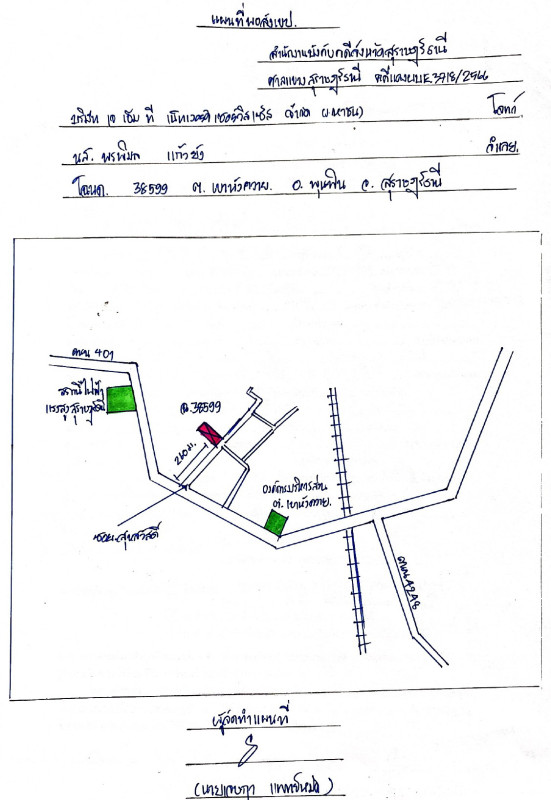 แผนที่พอสังเขป.
สำนักงานบังคับคดีจังหวัดสุราษฎร์ธานี
ศาลแขวงสุราษฎร์ธานี คดีแดงผบE3918/2566
บริษัท เจ เอ็ม ที เน็ทเวอร์ค เซอร์วิสเซ็ส จำกัด (มหาชน) โจทก์
น.ส. พรพิมล แก้วยัง จำเลย.
โฉนด. 38599 ต. เขาหัวควาย. อ. พุนพิน จ. สุราษฎร์ธานี
ถนน 401
สถานีไฟฟ้า
แรงสูงสุราษฎร์ธานี
ฉ.38599
200 ม.
ซอยสุขสวัสดิ์
องค์การบริหารส่วน
ต. เขาหัวควาย.
ถนน4248
ผู้จัดทำแผนที่